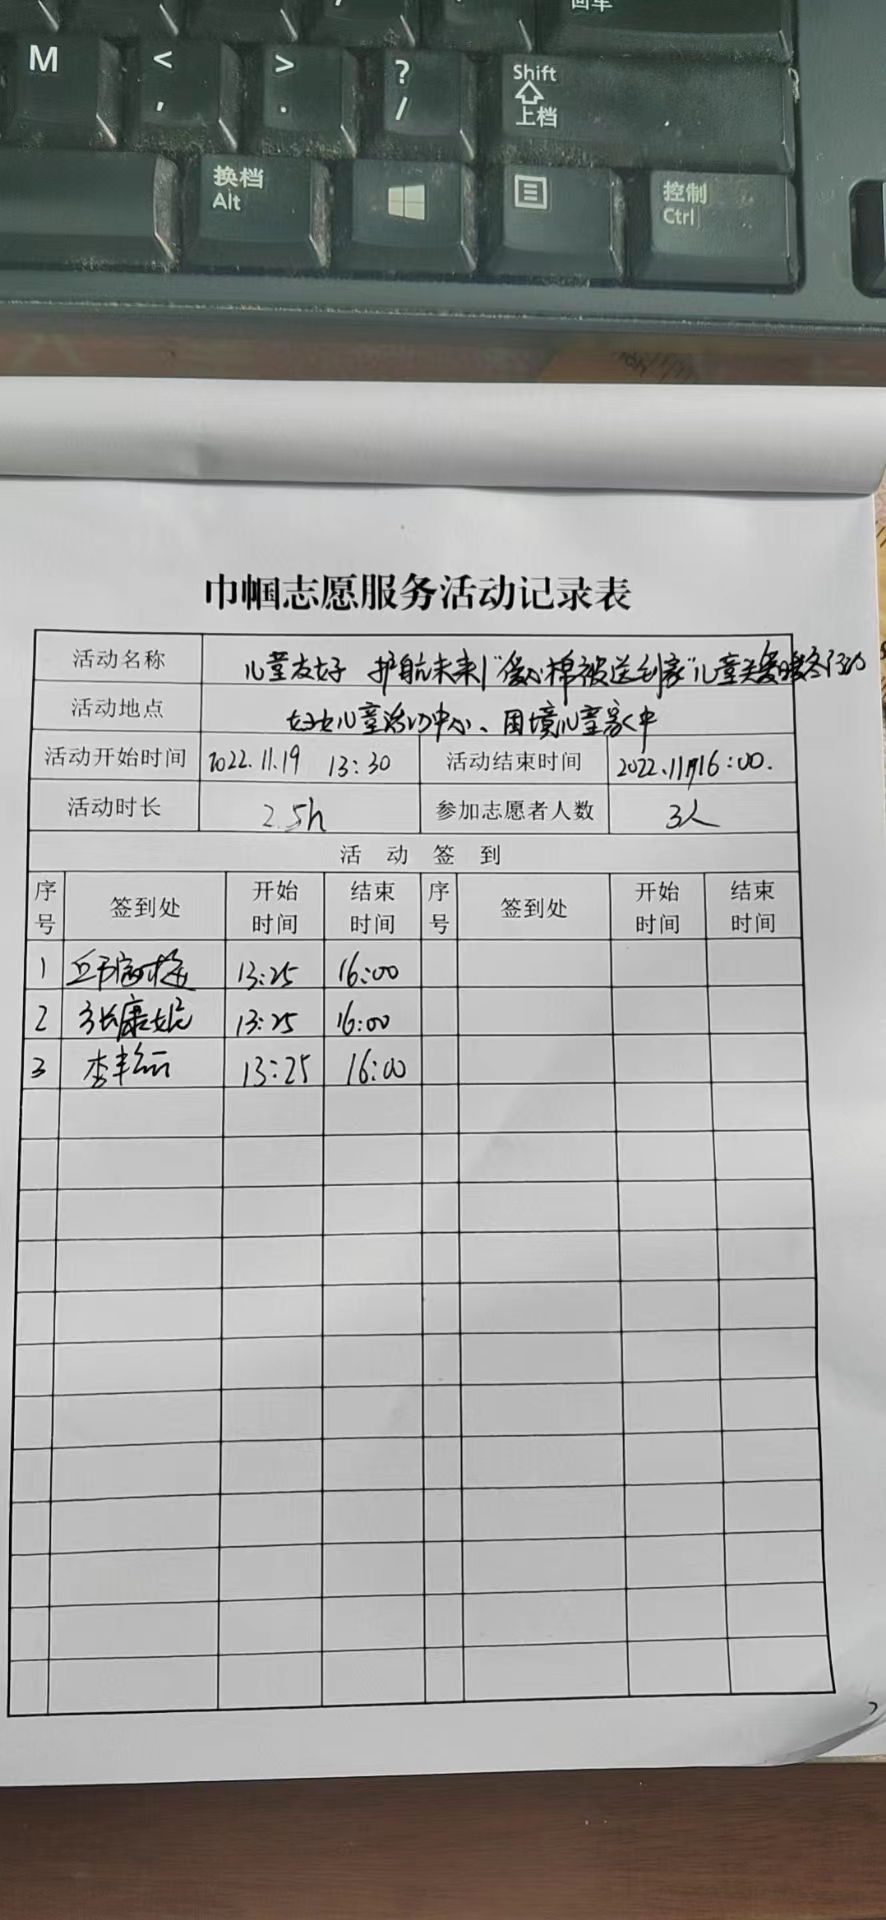 回车
M < , > . ? / Shift 上档
换档 Alt 控制 Ctrl
巾帼志愿服务活动记录表
活动名称 儿童友好 护航未来|"暖心棉被送到家"儿童关爱暖冬行动
活动地点 妇女儿童活动中心、困境儿童家中
活动开始时间 2022.11.19 13:30 活动结束时间 2022.11.19 16:00.
活动时长 2.5h 参加志愿者人数 3人
活动签到
序号 签到处 开始时间 结束时间 序号 签到处 开始时间 结束时间
1 13:25 16:00
2 张康妮 13:25 16:00
3 李 13:25 16:00